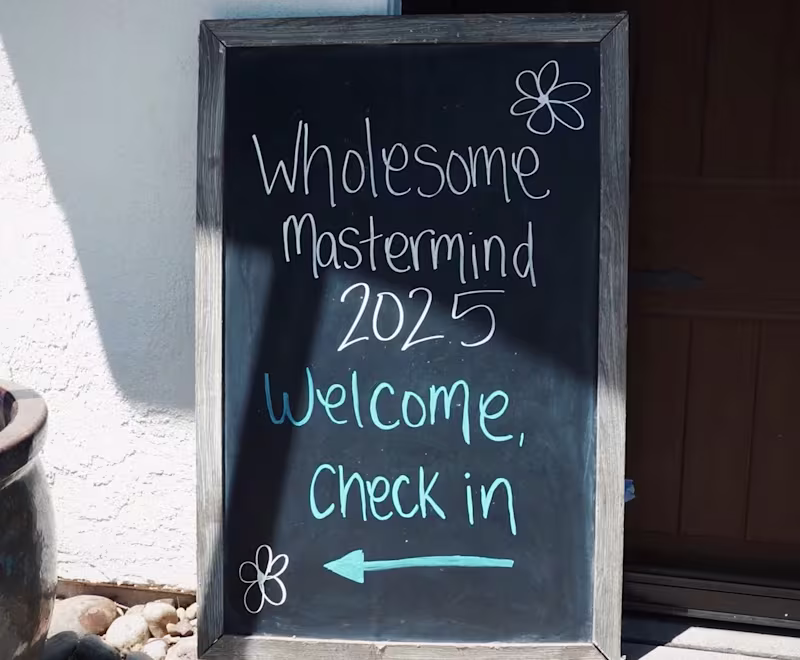 Wholesome
Mastermind
2025
Welcome,
Check in